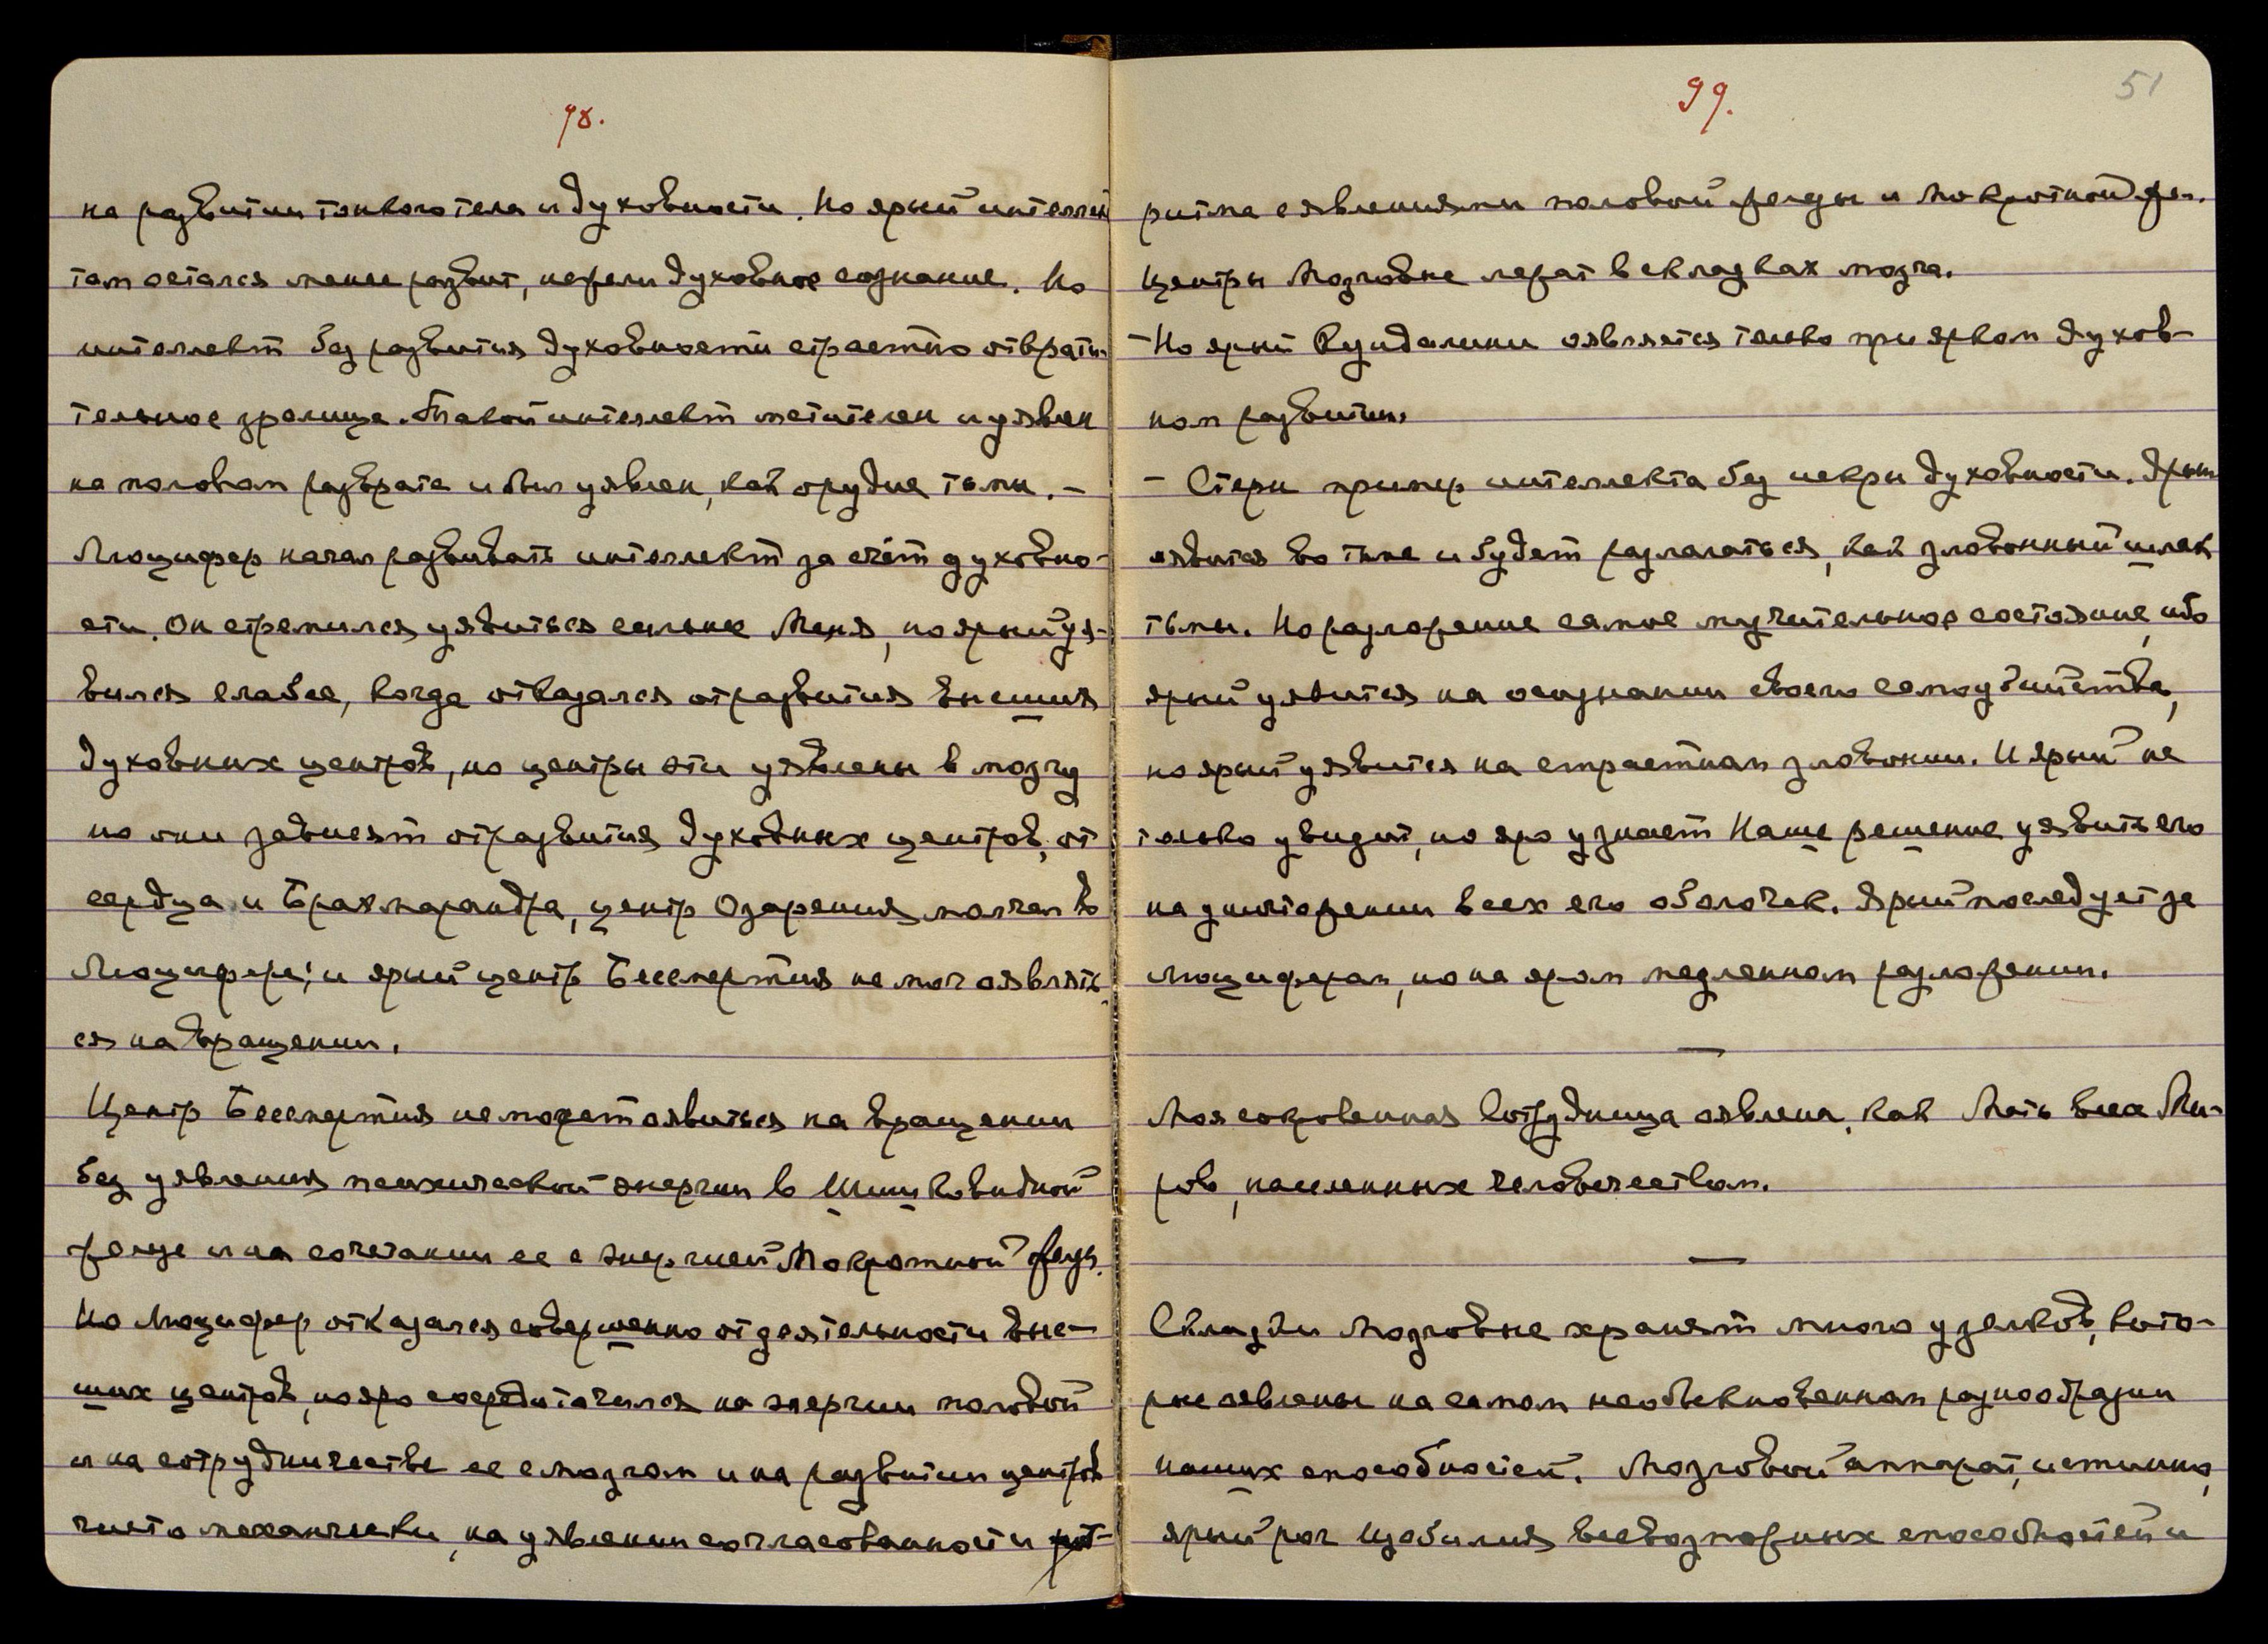 98.
на развитии тонкого тела и духовности. Но ярый интеллек
там остался менее развит, нежели духовное сознание. Но
интеллект без развития духовности страстно отврати-
тельное зрелище. Такой интеллект мстителен и уявлен
на половом разврате и был уявлен, как орудие тьмы. –
Люцифер начал развивать интеллект за счёт духовно-
сти. Он стремился уявиться сильнее Меня, но ярый уя-
вился слабее, когда отказался от развития высших
духовных центров, но центры эти уявлены в мозгу
но они зависят от развития духовных центров, от
сердца и Брахмарандра, центр Озарения молчал в
Люцифере; и ярый центр Бессмертия не мог оявлять-
ся на вращении.
Центр Бессмертия не может оявиться на вращении
без уявления психической энергии в Шишковидной
железе и на сочетании ее с энергией Мокротной желез.
Но Люцифер отказался совершенно от деятельности выс-
ших центров, но яро сосредоточился на энергии половой
и на сотрудничестве ее с мозгом и на развитии центров
чисто механически, на уявлении согласованности рит-
99.
51
ритма с явлениями половой железы и Мокротной жел.
Центры Мозговые лежат в складках мозга.
– Но ярый Кундалини оявляется только при ярком духов-
ном развитии.
– Стери пример интеллекта без искры духовности. Ярый
оявится во тьме и будет разлагаться, как зловонный шлак
тьмы. Но разложение самое мучительное состояние, ибо
ярый уявится на осознании своего самоубийства,
но ярый уявится на страстном зловонии. И ярый не
только увидит, но яро узнает Наше решение уявить его
на уничтожении всех его оболочек. Ярый последует за
Люцифером, но на яром медленном разложении.
—
Моя сокровенная Сотрудница оявлена, как Мать всех Ми-
ров, населенных человечеством.
—
Складки Мозговые хранят много узелков, кото-
рые оявлены на самом необыкновенном разнообразии
наших способностей. Мозговой аппарат, истинно,
ярый рог Изобилия всевозможных способностей и